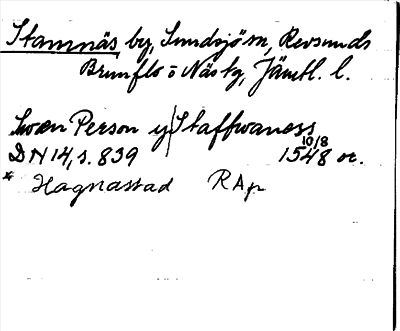 Stamnäs by, Sundsjö sn, Revsunds
Brunflo o Näs tg, Jämtl. l.
Swæn Person y Staffwaness
10/8
DN 14, s. 839 1548 or.
* Hagnastad RAp